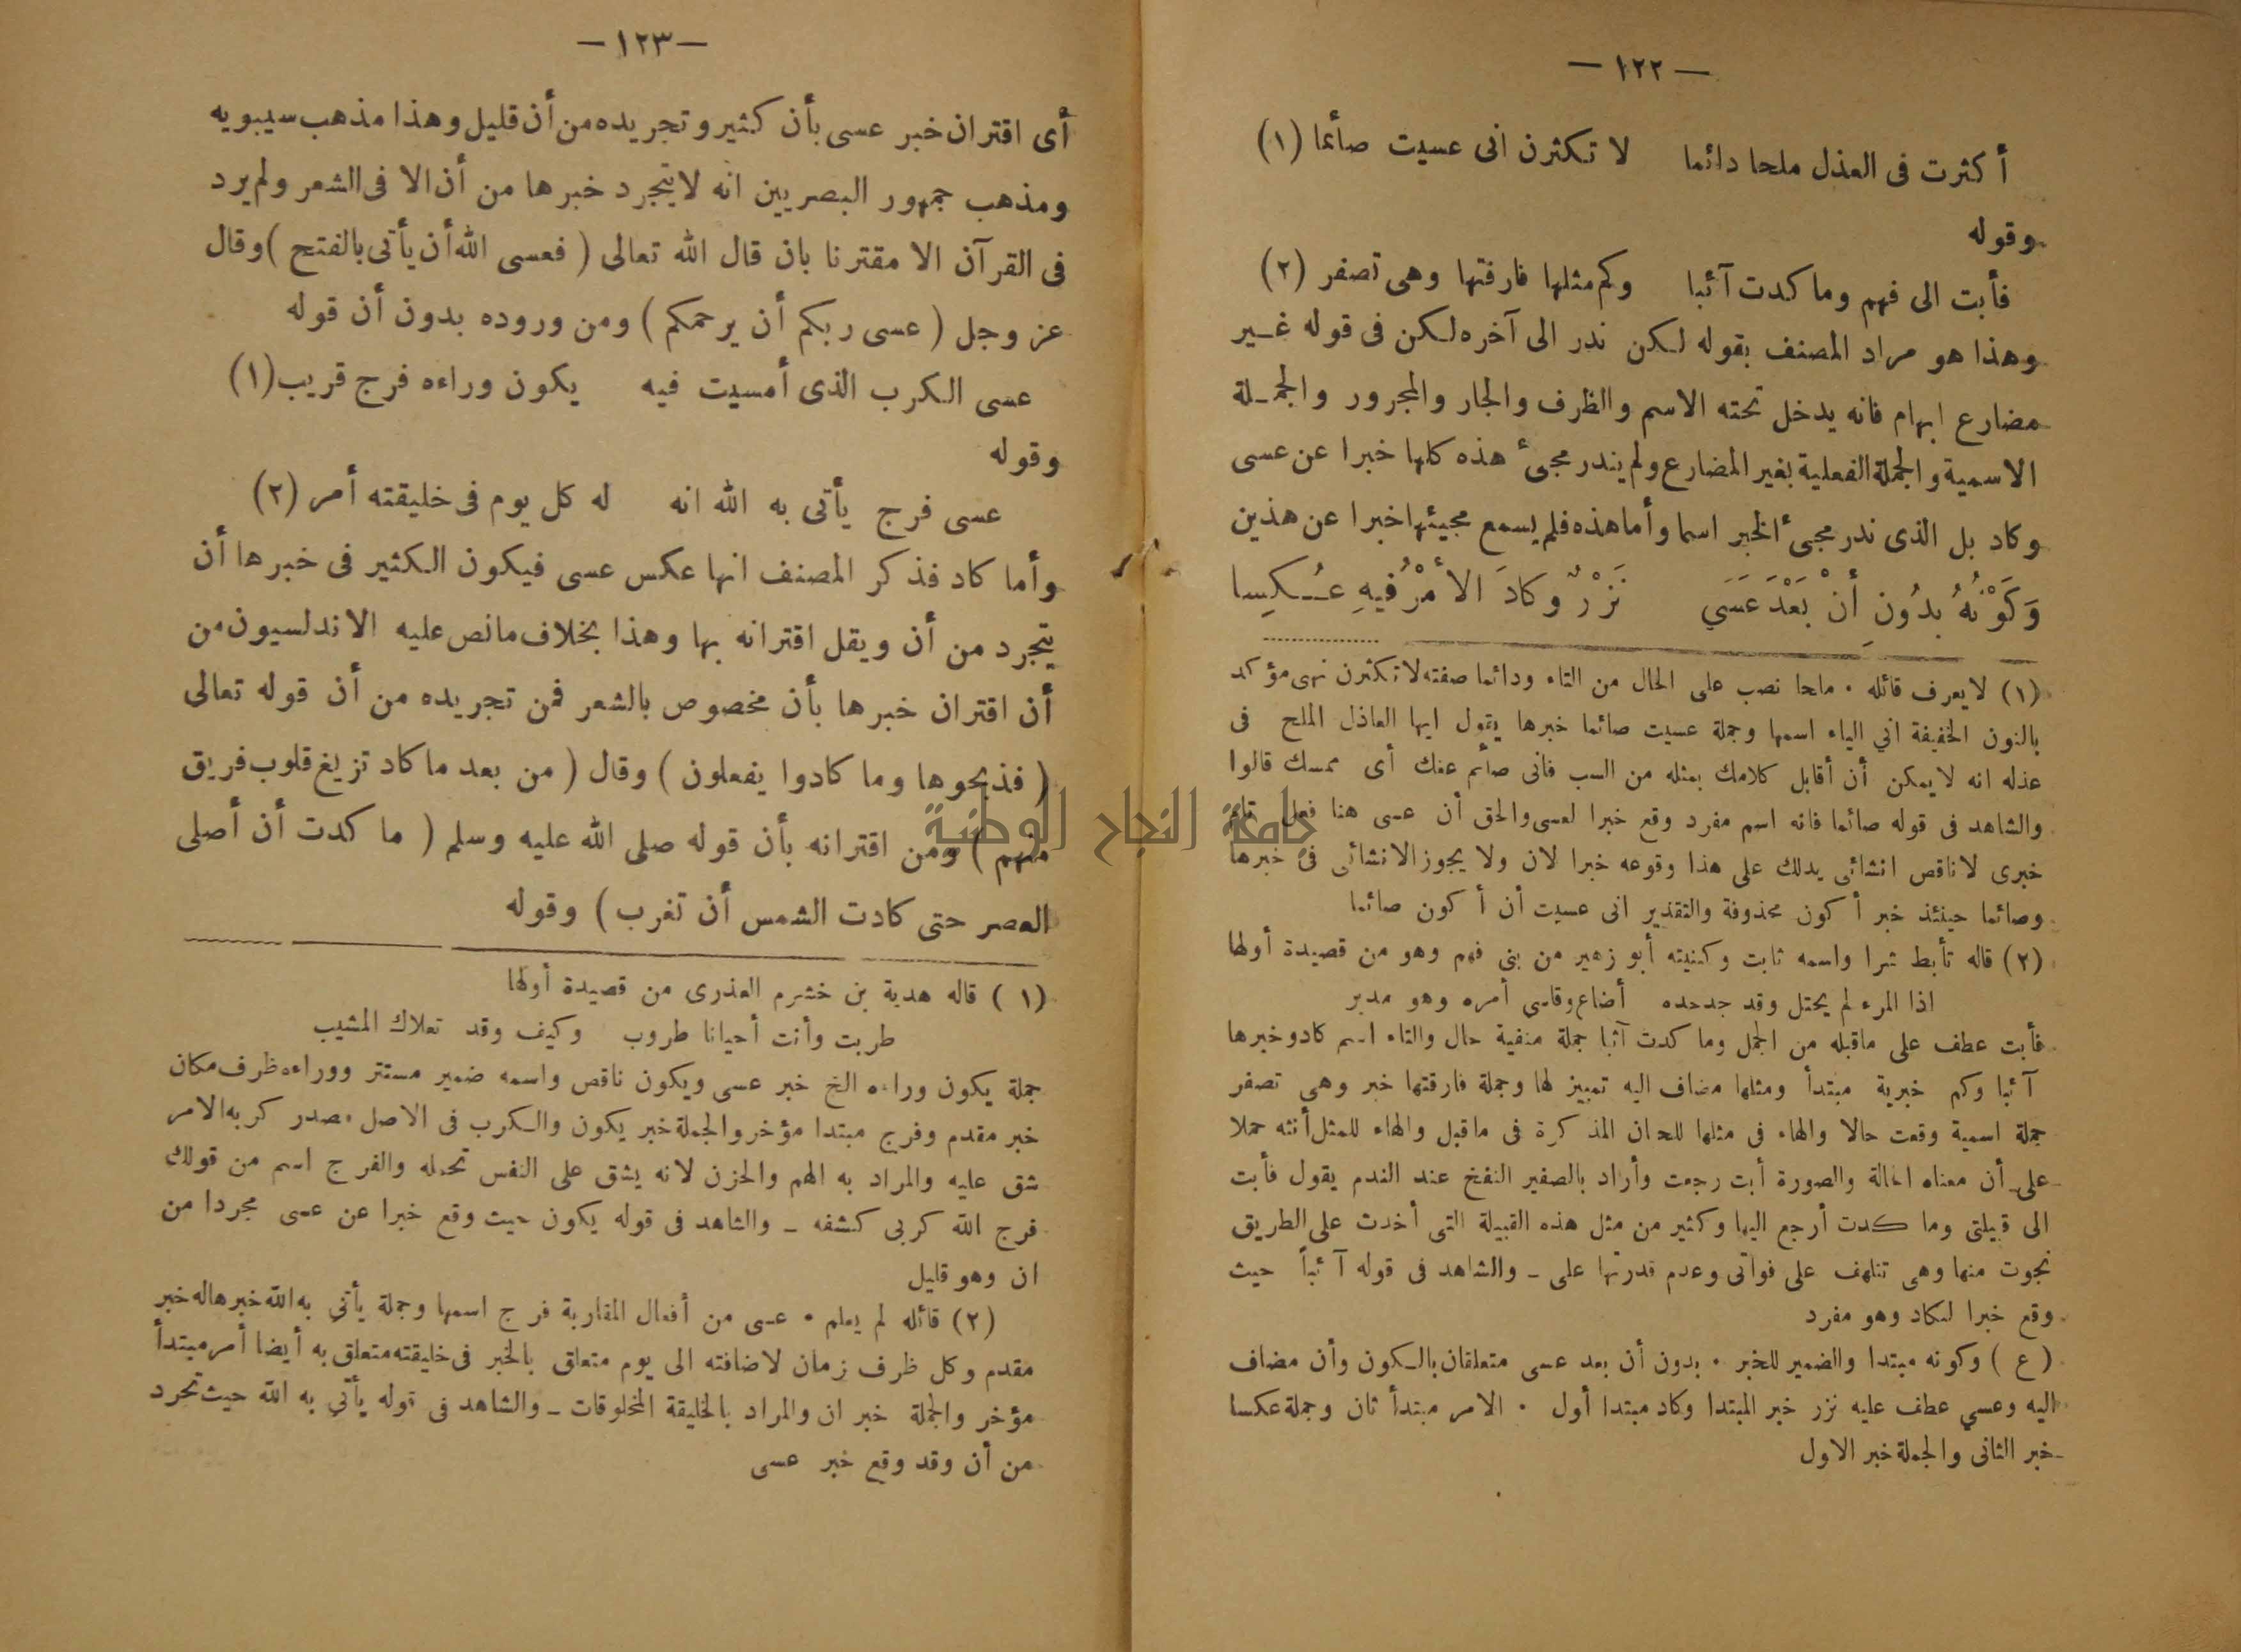 — ١٢٢ —
أكثرت فى العذل ملحا دائما لا تكثرن انى عسيت صائما (١)
وقوله
فأبت الى فهم وما كدت آئبا وكم مثلها فارقتها وهى تصفر (٢)
وهذا هو مراد المصنف بقوله لكن ندر الى آخره لكن فى قوله غير
مضارع ابهام فانه يدخل تحته الاسم والظرف والجار والمجرور والجملة
الاسمية والجملة الفعلية بغير المضارع ولم يندر مجىء هذه كلها خبرا عن عسى
وكاد بل الذى ندر مجىء الخبر اسما وأما هذه فلم يسمع مجيئها خبرا عن هذين
وَكَوْنُهُ بِدُونِ أَنْ بَعْدَ عَسَي نَزْرٌ وَكادَ الأَمْرُ فيهِ عُكِسا
(١) لايعرف قائله . ملحا نصب على الحال من التاء ودائما صفته لا تكثرن نهى مؤكد
بالنون الخفيفة اني الياء اسمها وجملة عسيت صائما خبرها يقول ايها العاذل الملح فى
عذله انه لا يمكن أن أقابل كلامك بمثله من السب فانى صائم عنك أى ممسك قالوا
والشاهد فى قوله صائما فانه اسم مفرد وقع خبرا لعسى والحق أن عسى هنا فعل تام
خبرى لا ناقص انشائى يدلك على هذا وقوعه خبرا لان ولا يجوز الانشائى فى خبرها
وصائما حينئذ خبر أكون محذوفة والتقدير انى عسيت أن أكون صائما
(٢) قاله تأبط شرا واسمه ثابت وكنيته أبو زهير من بنى فهم وهو من قصيدة أولها
اذا المرء لم يحتل وقد جد جده أضاع وقاسى أمره وهو مدبر
فأبت عطف على ماقبله من الجمل وما كدت آئبا جملة منفية حال والتاء اسم كاد وخبرها
آئبا وكم خبرية مبتدأ ومثلها مضاف اليه تمييز لها وجملة فارقتها خبر وهى تصفر
جملة اسمية وقعت حالا والهاء فى مثلها للحيان المذكرة فى ماقبل والهاء للمثل أنثه حملا
على أن معناه الحالة والصورة أبت رجعت وأراد بالصفير النفخ عند الندم يقول فأبت
الى قبيلتى وما كدت أرجع اليها وكثير من مثل هذه القبيلة التى أخدت على الطريق
نجوت منها وهى تتلهف على فواتى وعدم قدرتها على ـ والشاهد فى قوله آئباً حيث
وقع خبرا لكاد وهو مفرد
( ع ) وكونه مبتدا والضمير للخبر . بدون أن بعد عسى متعلقان بالكون وأن مضاف
اليه وعسي عطف عليه نزر خبر المبتدا وكاد مبتدا أول . الامر مبتدأ ثان وجملة عكسا
خبر الثانى والجملة خبر الاول
— ١٢٣ —
أى اقتران خبر عسى بأن كثير وتجريده من أن قليل وهذا مذهب سيبويه
ومذهب جمهور البصريين انه لا يتجرد خبرها من أن الا فى الشعر ولم يرد
فى القرآن الا مقترنا بان قال الله تعالى ( فعسى الله أن يأتى بالفتح ) وقال
عز وجل ( عسى ربكم أن يرحمكم ) ومن وروده بدون أن قوله
عسى الكرب الذى أمسيت فيه يكون وراءه فرج قريب (١)
وقوله
عسى فرج يأتى به الله انه له كل يوم فى خليقته أمر (٢)
وأما كاد فذكر المصنف انها عكس عسى فيكون الكثير فى خبرها أن
يتجرد من أن ويقل اقترانه بها وهذا بخلاف مانص عليه الاندلسيون من
أن اقتران خبرها بأن مخصوص بالشعر فمن تجريده من أن قوله تعالى
( فذبحوها وما كادوا يفعلون ) وقال ( من بعد ما كاد تزيغ قلوب فريق
منهم ) ومن اقترانه بأن قوله صلى الله عليه وسلم ( ما كدت أن أصلى
العصر حتى كادت الشمس أن تغرب ) وقوله
(١) قاله هدية بن خشرم العذرى من قصيدة أولها
طربت وأنت أحيانا طروب وكيف وقد تعلاك المشيب
جملة يكون وراءه الخ خبر عسى ويكون ناقص واسمه ضمير مستتر ووراءه ظرف مكان
خبر مقدم وفرج مبتدا مؤخر والجملة خبر يكون والكرب فى الاصل مصدر كربه الامر
شق عليه والمراد به الهم والحزن لانه يشق على النفس تحمله والفرج اسم من قولك
فرج الله كربى كشفه ـ والشاهد فى قوله يكون حيث وقع خبرا عن عسى مجردا من
ان وهو قليل
(٢) قائله لم يعلم . عسى من أفعال المقاربة فرج اسمها وجملة يأتي به الله خبرها له خبر
مقدم وكل ظرف زمان لاضافته الى يوم متعلق بالخبر فى خليقته متعلق به أيضا أمر مبتدأ
مؤخر والجملة خبر ان والمراد بالخليقة المخلوقات ـ والشاهد فى قوله يأتي به الله حيث تجرد
من أن وقد وقع خبر عسى
جامعة النجاح الوطنية